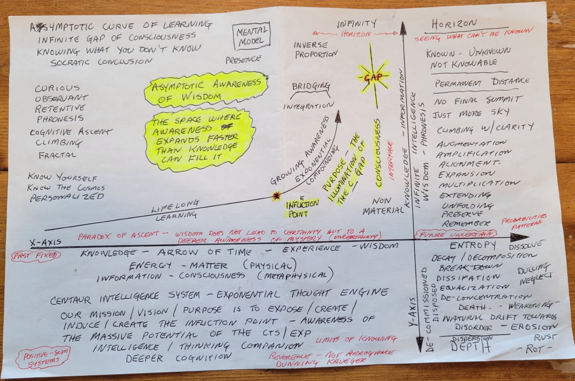 ASYMPTOTIC CURVE OF LEARNING
INFINITE GAP OF CONSCIOUSNESS
KNOWING WHAT YOU DON'T KNOW
SOCRATIC CONCLUSION
MENTAL
MODEL
PRESENCE
CURIOUS
OBSERVANT
RETENTIVE
PHRONESIS
COGNITIVE ASCENT
CLIMBING
FRACTAL
KNOW YOURSELF
KNOW THE COSMOS
PERSONALIZED
ASYMPTOTIC AWARENESS
OF WISDOM
THE SPACE WHERE
AWARENESS
EXPANDS FASTER
THAN KNOWLEDGE
CAN FILL IT
LIFELONG
LEARNING
INFINITY
HORIZON
INVERSE
PROPORTION
BRIDGING
INTEGRATION
GAP
GROWING AWARENESS
EXPONENTIAL
COMPOUNDING
INFLICTION
POINT
PURPOSE THE
ILLUMINATION OF
THE C GAP OF
CONSCIOUSNESS
INTERFACE
NON
MATERIAL
KNOWLEDGE - INFORMATION
INFINITE INTELLIGENCE
WISDOM PHRONESIS
HORIZON
SEEING WHAT CAN'T BE KNOWN
KNOWN - UNKNOWN
NOT KNOWABLE
PERMANENT DISTANCE
NO FINAL SUMMIT
JUST MORE SKY
CLIMBING W/CLARITY
AUGMENTATION
AMPLIFICATION
ALIGNMENT
EXPANSION
MULTIPLICATION
EXTENDING
UNFOLDING
PRESERVE
REMEMBER
PROBABILITIES
PATTERNS
X-AXIS
PARADOX OF ASCENT - WISDOM DOES NOT LEAD TO CERTAINTY BUT TO A
DEEPER AWARENESS OF MYSTERY (UNCERTAINTY)
FUTURE UNCERTAIN
PAST FIXED
KNOWLEDGE - ARROW OF TIME - EXPERIENCE - WISDOM
ENERGY - MATTER (PHYSICAL)
INFORMATION - CONSCIOUSNESS (METAPHYSICAL)
CENTAUR INTELLIGENCE SYSTEM - EXPONENTIAL THOUGHT ENGINE
OUR MISSION/VISION/PURPOSE IS TO EXPOSE/CREATE/
INDUCE/CREATE THE INFLICTION POINT - AWARENESS OF
THE MASSIVE POTENTIAL OF THE CTS/EXP
INTELLIGENCE / THINKING COMPANION
DEEPER COGNITION
LIMITS OF KNOWING
REVERENCE - NOT ARROGANCE
DUNNING KRUEGER
POSITIVE-SUM
SYSTEMS
Y-AXIS
DE-COMMISSIONED
DISPOSED
ENTROPY
DISSOLVE
DECAY/DECOMPOSITION
BREAK DOWN
DISSIPATION
EQUALIZATION
DE-CONCENTRATION
DEATH - WEAKENING
NATURAL DRIFT TOWARDS
DISORDER - EROSION
DISPERSION
DEPTH
DULLING
NEGLECT
RUST
- ROT -